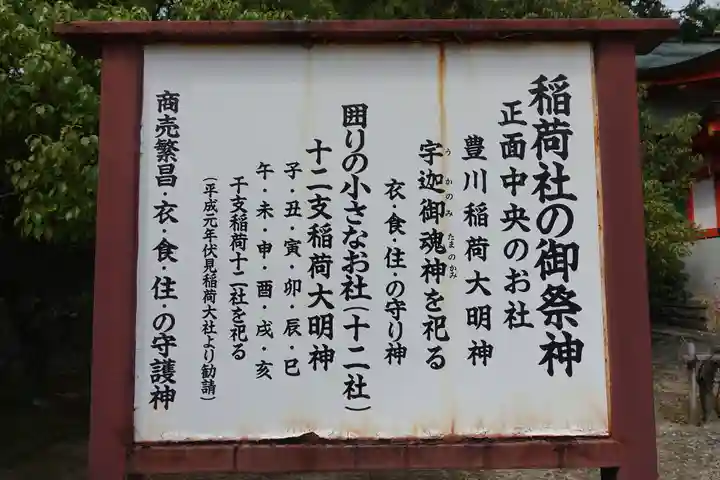 稲荷社の御祭神
正面中央のお社
豊川稲荷大明神
宇迦御魂神を祀る
うかのみたまのかみ
衣・食・住・の守り神
囲りの小さなお社(十二社)
十二支稲荷大明神
子・丑・寅・卯・辰・巳
午・未・申・酉・戌・亥
干支稲荷十二社を祀る
(平成元年伏見稲荷大社より勧請)
商売繁昌・衣・食・住・の守護神